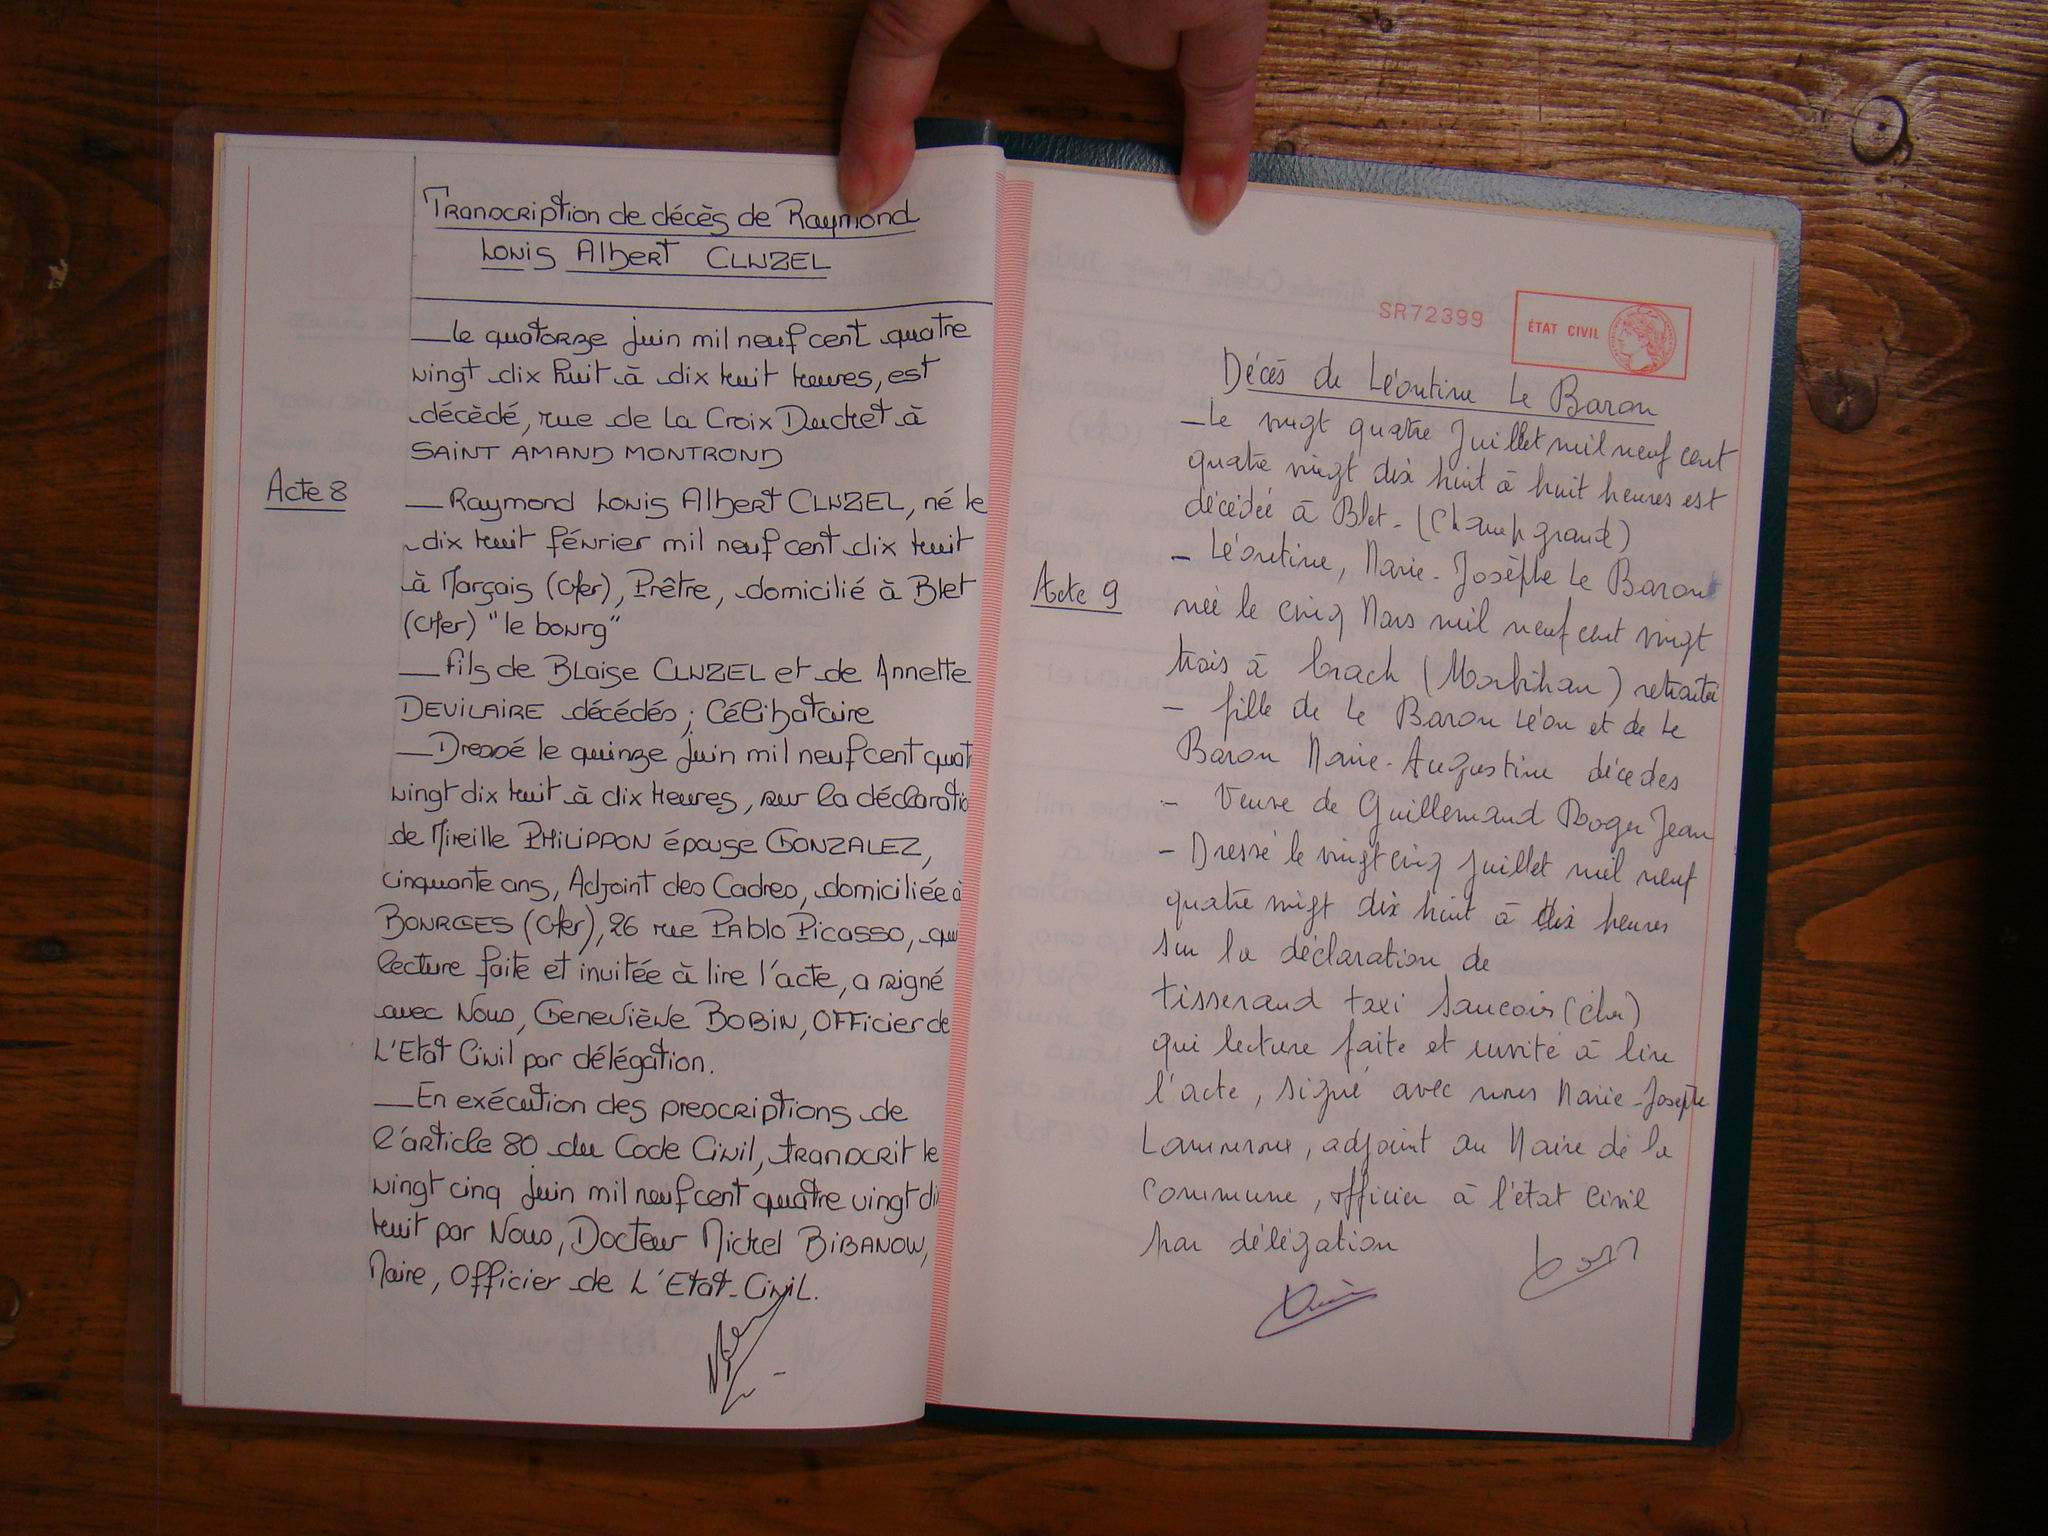 Transcription de décès de Raymond
Louis Albert CLUZEL
le quatorze juin mil neuf cent quatre
vingt dix huit à dix huit heures, est
décèdé, rue de la Croix Duchet à
SAINT AMAND MONTROND
Acte 8
Raymond Louis Albert CLUZEL, né le
dix huit février mil neuf cent dix huit
à Marçais (Cher), Prêtre, domicilié à Blet
(Cher) "le bourg"
fils de Blaise CLUZEL et de Annette
DEVILAIRE décédés ; Célibataire
Dressé le quinze juin mil neuf cent quat
vingt dix huit à dix heures, sur la déclaratio
de Mireille PHILIPPON épouse GONZALEZ,
cinquante ans, Adjoint des Cadres, domiciliée à
BOURGES (Cher), 26 rue Pablo Picasso, qui
lecture faite et invitée à lire l'acte, a signé
avec Nous, Geneviève BOBIN, Officier de
L'Etat Civil par délégation.
En exécution des prescriptions de
l'article 80 du Code Civil, transcrit le
vingt cinq juin mil neuf cent quatre vingt di
huit par Nous, Docteur Michel BIBANOW,
Maire, Officier de L'Etat-Civil.
SR72399
ÉTAT CIVIL
Décès de Léontine Le Baron
- Le vingt quatre Juillet mil neuf cent
quatre vingt dix huit à huit heures est
décédée à Blet - (Champ grand)
- Léontine, Marie-Josèphe Le Baron
Acte 9
née le cinq Mars mil neuf cent vingt
trois à Crach (Morbihan) retraitée
- fille de Le Baron Léon et de Le
Baron Marie-Augustine décédés
- Veuve de Guillemaud Roger Jean
- Dressé le vingt cinq juillet mil neuf
quatre vingt dix huit à dix heures
sur la déclaration de
tisserand taxi Sancoins (cher)
qui lecture faite et invité à lire
l'acte, signé avec nous Marie-Josèphe
Lamoureux, adjoint au Maire de la
commune, officier à l'état civil
par délégation